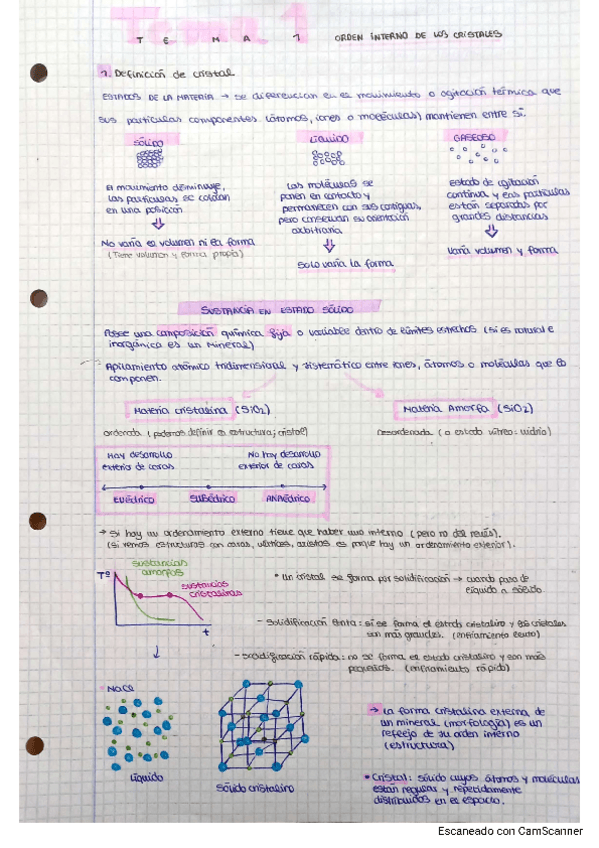 Tema 1
TEMA 1 ORDEN INTERNO DE LOS CRISTALES
1. Definición de cristal
ESTADOS DE LA MATERIA → se diferencian en el movimiento o agitación térmica que
sus partículas componentes (átomos, iones o moléculas) mantienen entre sí.
SÓLIDO
LÍQUIDO
GASEOSO
El movimiento disminuye,
las partículas se colocan
en una posición
No varía el volumen ni la forma
(Tiene volumen y forma propia)
Las moléculas se
ponen en contacto y
permanecen con sus contiguas,
pero conservan su orientación
arbitraria
Solo varía la forma
Estado de agitación
continua y las partículas
están separadas por
grandes distancias
Varía volumen y forma
SUSTANCIA EN ESTADO SÓLIDO
Posee una composición química fija o variable dentro de límites estrechos (si es natural e
inorgánica es un mineral)
Apilamiento atómico tridimensional y sistemático entre iones, átomos o moléculas que lo
componen.
Materia cristalina (SiO2)
Materia Amorfa (SiO2)
ordenada (podemos definir la estructura; cristal)
Desordenada (o estado vítreo: vidrio)
Hay desarrollo
exterior de caras
No hay desarrollo
exterior de caras
EUÉDRICO SUBÉDRICO ANAÉDRICO
→ Si hay un ordenamiento externo tiene que haber uno interno (pero no del revés).
(Si vemos estructuras con caras, vértices, aristas es porque hay un ordenamiento exterior).
Tº
sustancias
amorfas
sustancias
cristalinas
t
• Un cristal se forma por solidificación → cuando pasa de
líquido a sólido.
- Solidificación lenta: si se forma el estado cristalino y los cristales
son más grandes. (enfriamiento lento)
- Solidificación rápida: no se forma el estado cristalino y son más
pequeños. (enfriamiento rápido)
NaCl
Líquido
Sólido cristalino
→ La forma cristalina externa de
un mineral (morfología) es un
reflejo de su orden interno
(estructura)
• Cristal: sólido cuyos átomos y moléculas
están regular y repetidamente
distribuidos en el espacio.
Escaneado con CamScanner